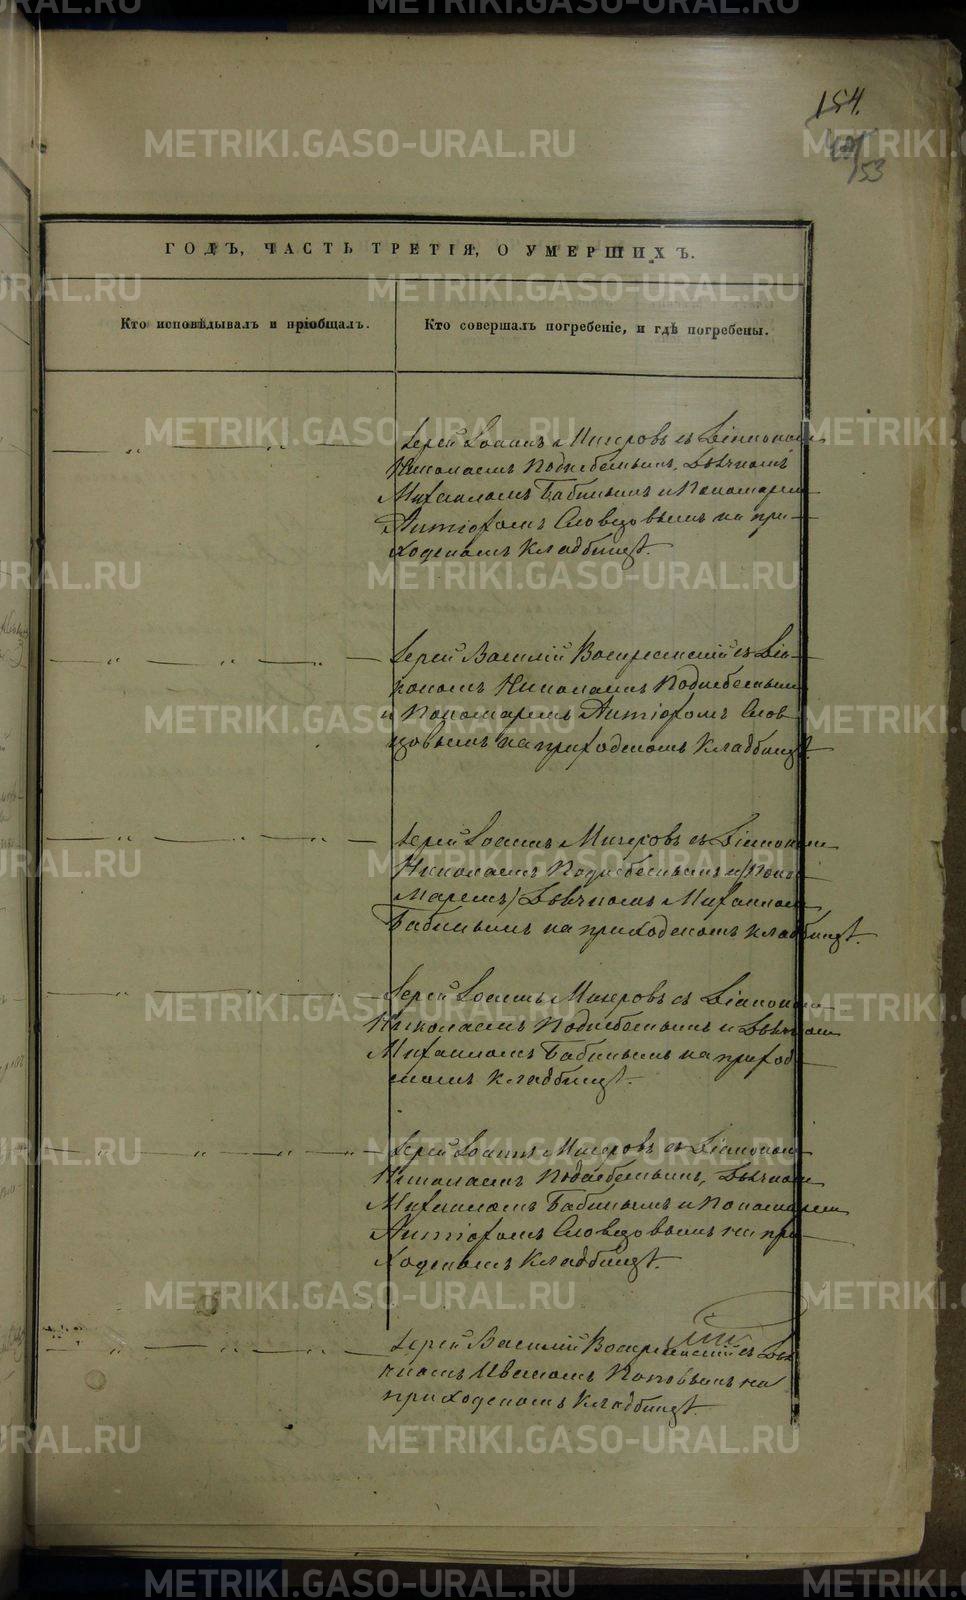 154.
53
ГОДЪ, ЧАСТЬ ТРЕТІЯ, О УМЕРШИХЪ.
Кто исповѣдывалъ и пріобщалъ.
Кто совершалъ погребеніе, и гдѣ погребены.
Іерей Іоаннъ Мизеровъ съ Діакономъ
Николаемъ Поднебеснымъ, Дьячкомъ
Михаиломъ Бабинымъ и Пономаремъ
Антіохомъ Словцовымъ на при-
ходскомъ кладбищѣ.
Іерей Василій Воскресенскій съ Діа-
кономъ Николаемъ Поднебеснымъ
и Пономаремъ Антіохомъ Слов-
цовымъ на приходскомъ кладбищѣ.
Іерей Іоаннъ Мизеровъ съ Діакономъ
Николаемъ Поднебеснымъ и (Поно-
маремъ) Дьячкомъ Михаиломъ
Бабинымъ на приходскомъ кладбищѣ.
Іерей Іоаннъ Мизеровъ съ Діакономъ
Николаемъ Поднебеснымъ и Дьячкомъ
Михаиломъ Бабинымъ на приход-
скомъ кладбищѣ.
Іерей Іоаннъ Мизеровъ съ Діакономъ
Николаемъ Поднебеснымъ, Дьячкомъ
Михаиломъ Бабинымъ и Пономаремъ
Антіохомъ Словцовымъ на при-
ходскомъ кладбищѣ.
Іерей Василій Воскресенскій съ Дья-
чкомъ Иваномъ Поповымъ на
приходскомъ кладбищѣ.
METRIKI.GASO-URAL.RU